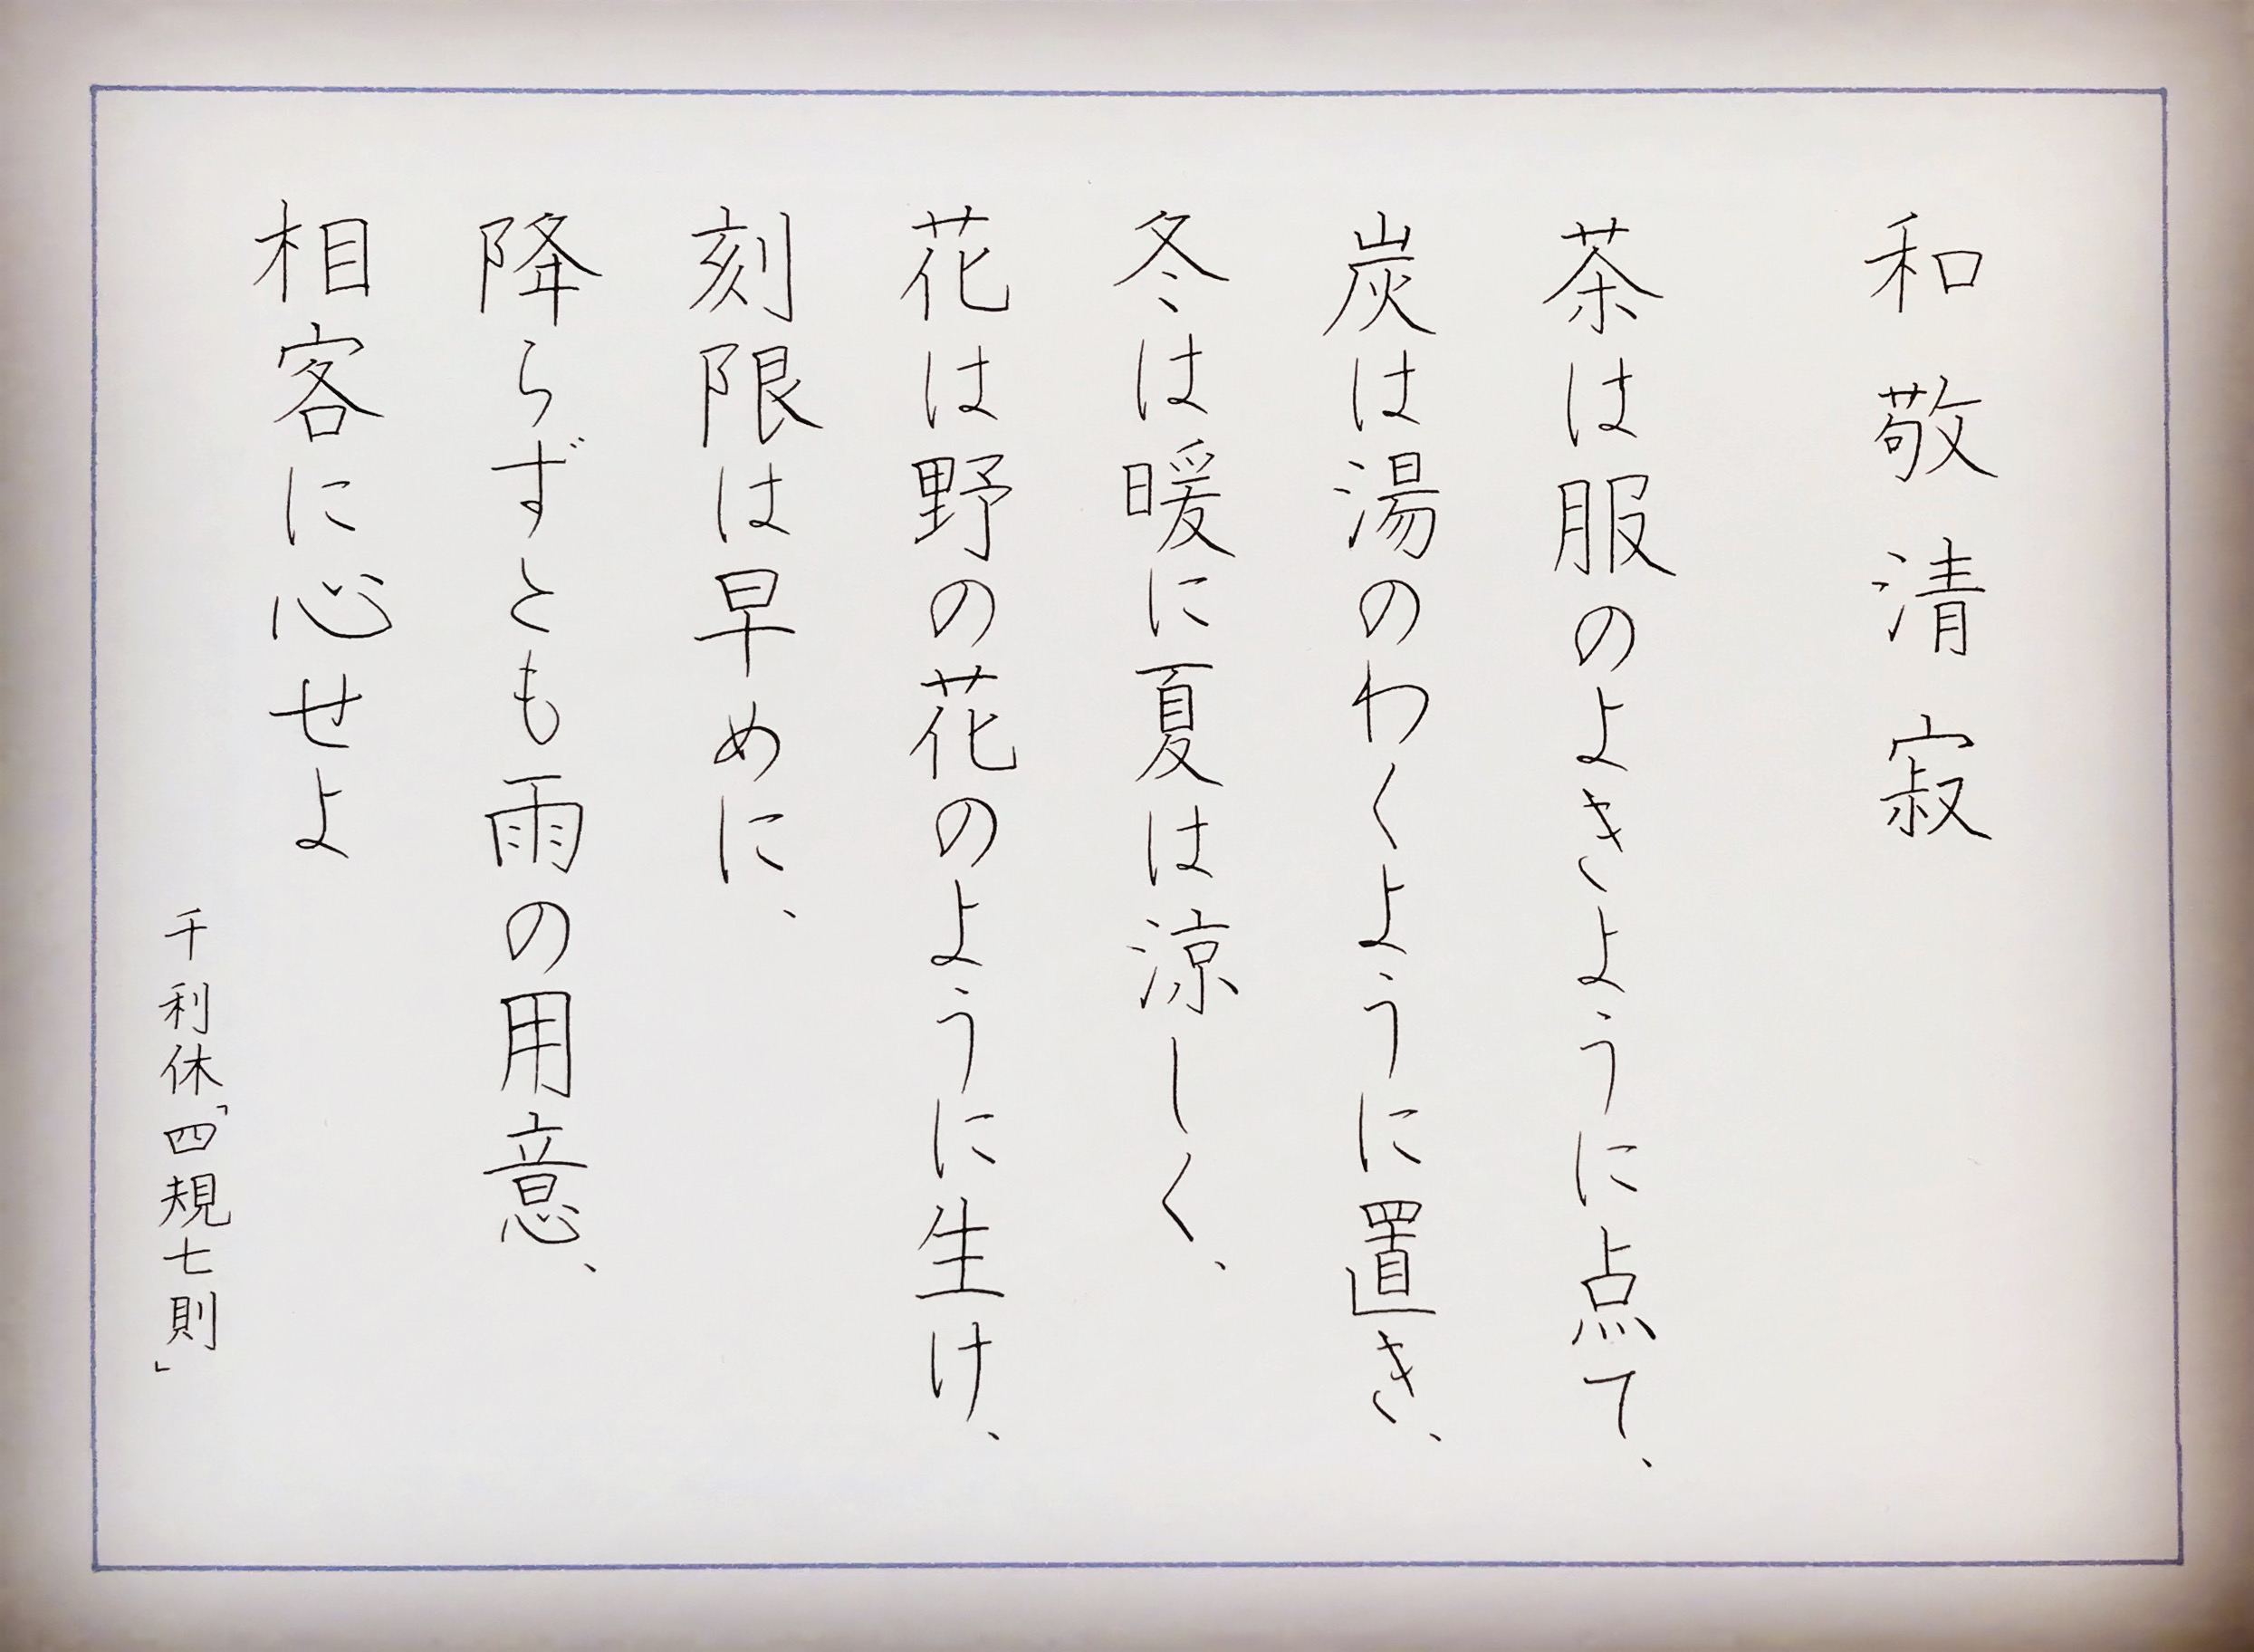 和敬清寂
茶は服のよきように点て、
炭は湯のわくように置き、
冬は暖に夏は涼しく、
花は野の花のように生け、
刻限は早めに、
降らずとも雨の用意、
相客に心せよ
千利休「四規七則」